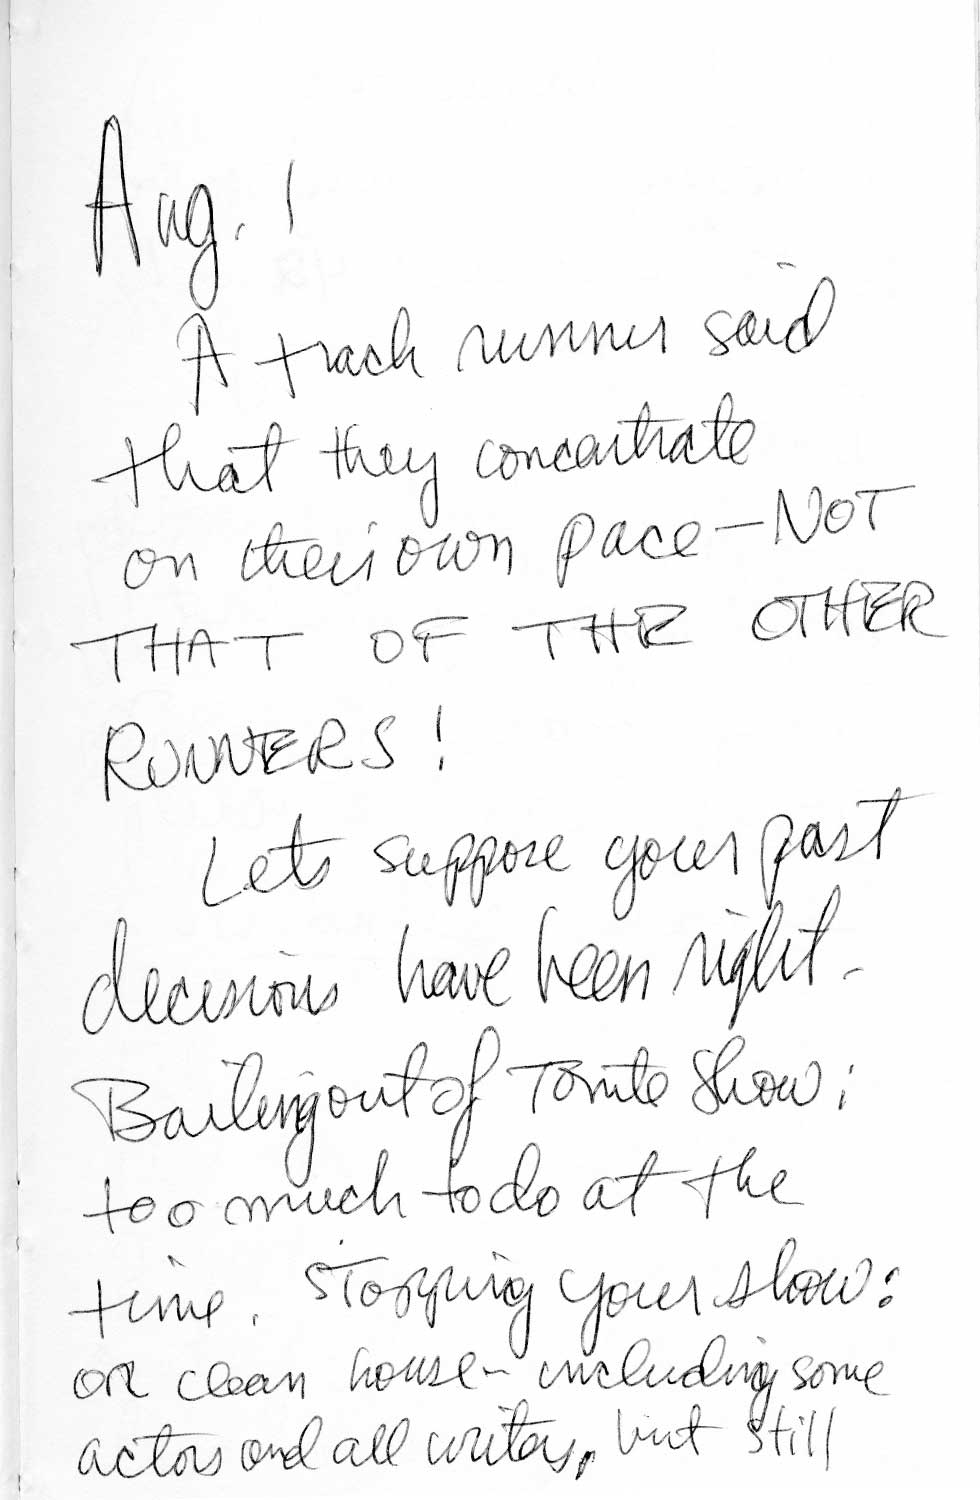 Aug. 1
A track runner said
that they concentrate
on their own pace — NOT
THAT OF THE OTHER
RUNNERS!
Lets suppose your past
decisions have been right.
Bailing out of Tonite Show:
too much to do at the
time. Stopping your show:
OR clean house - including some
actors and all writers, but still